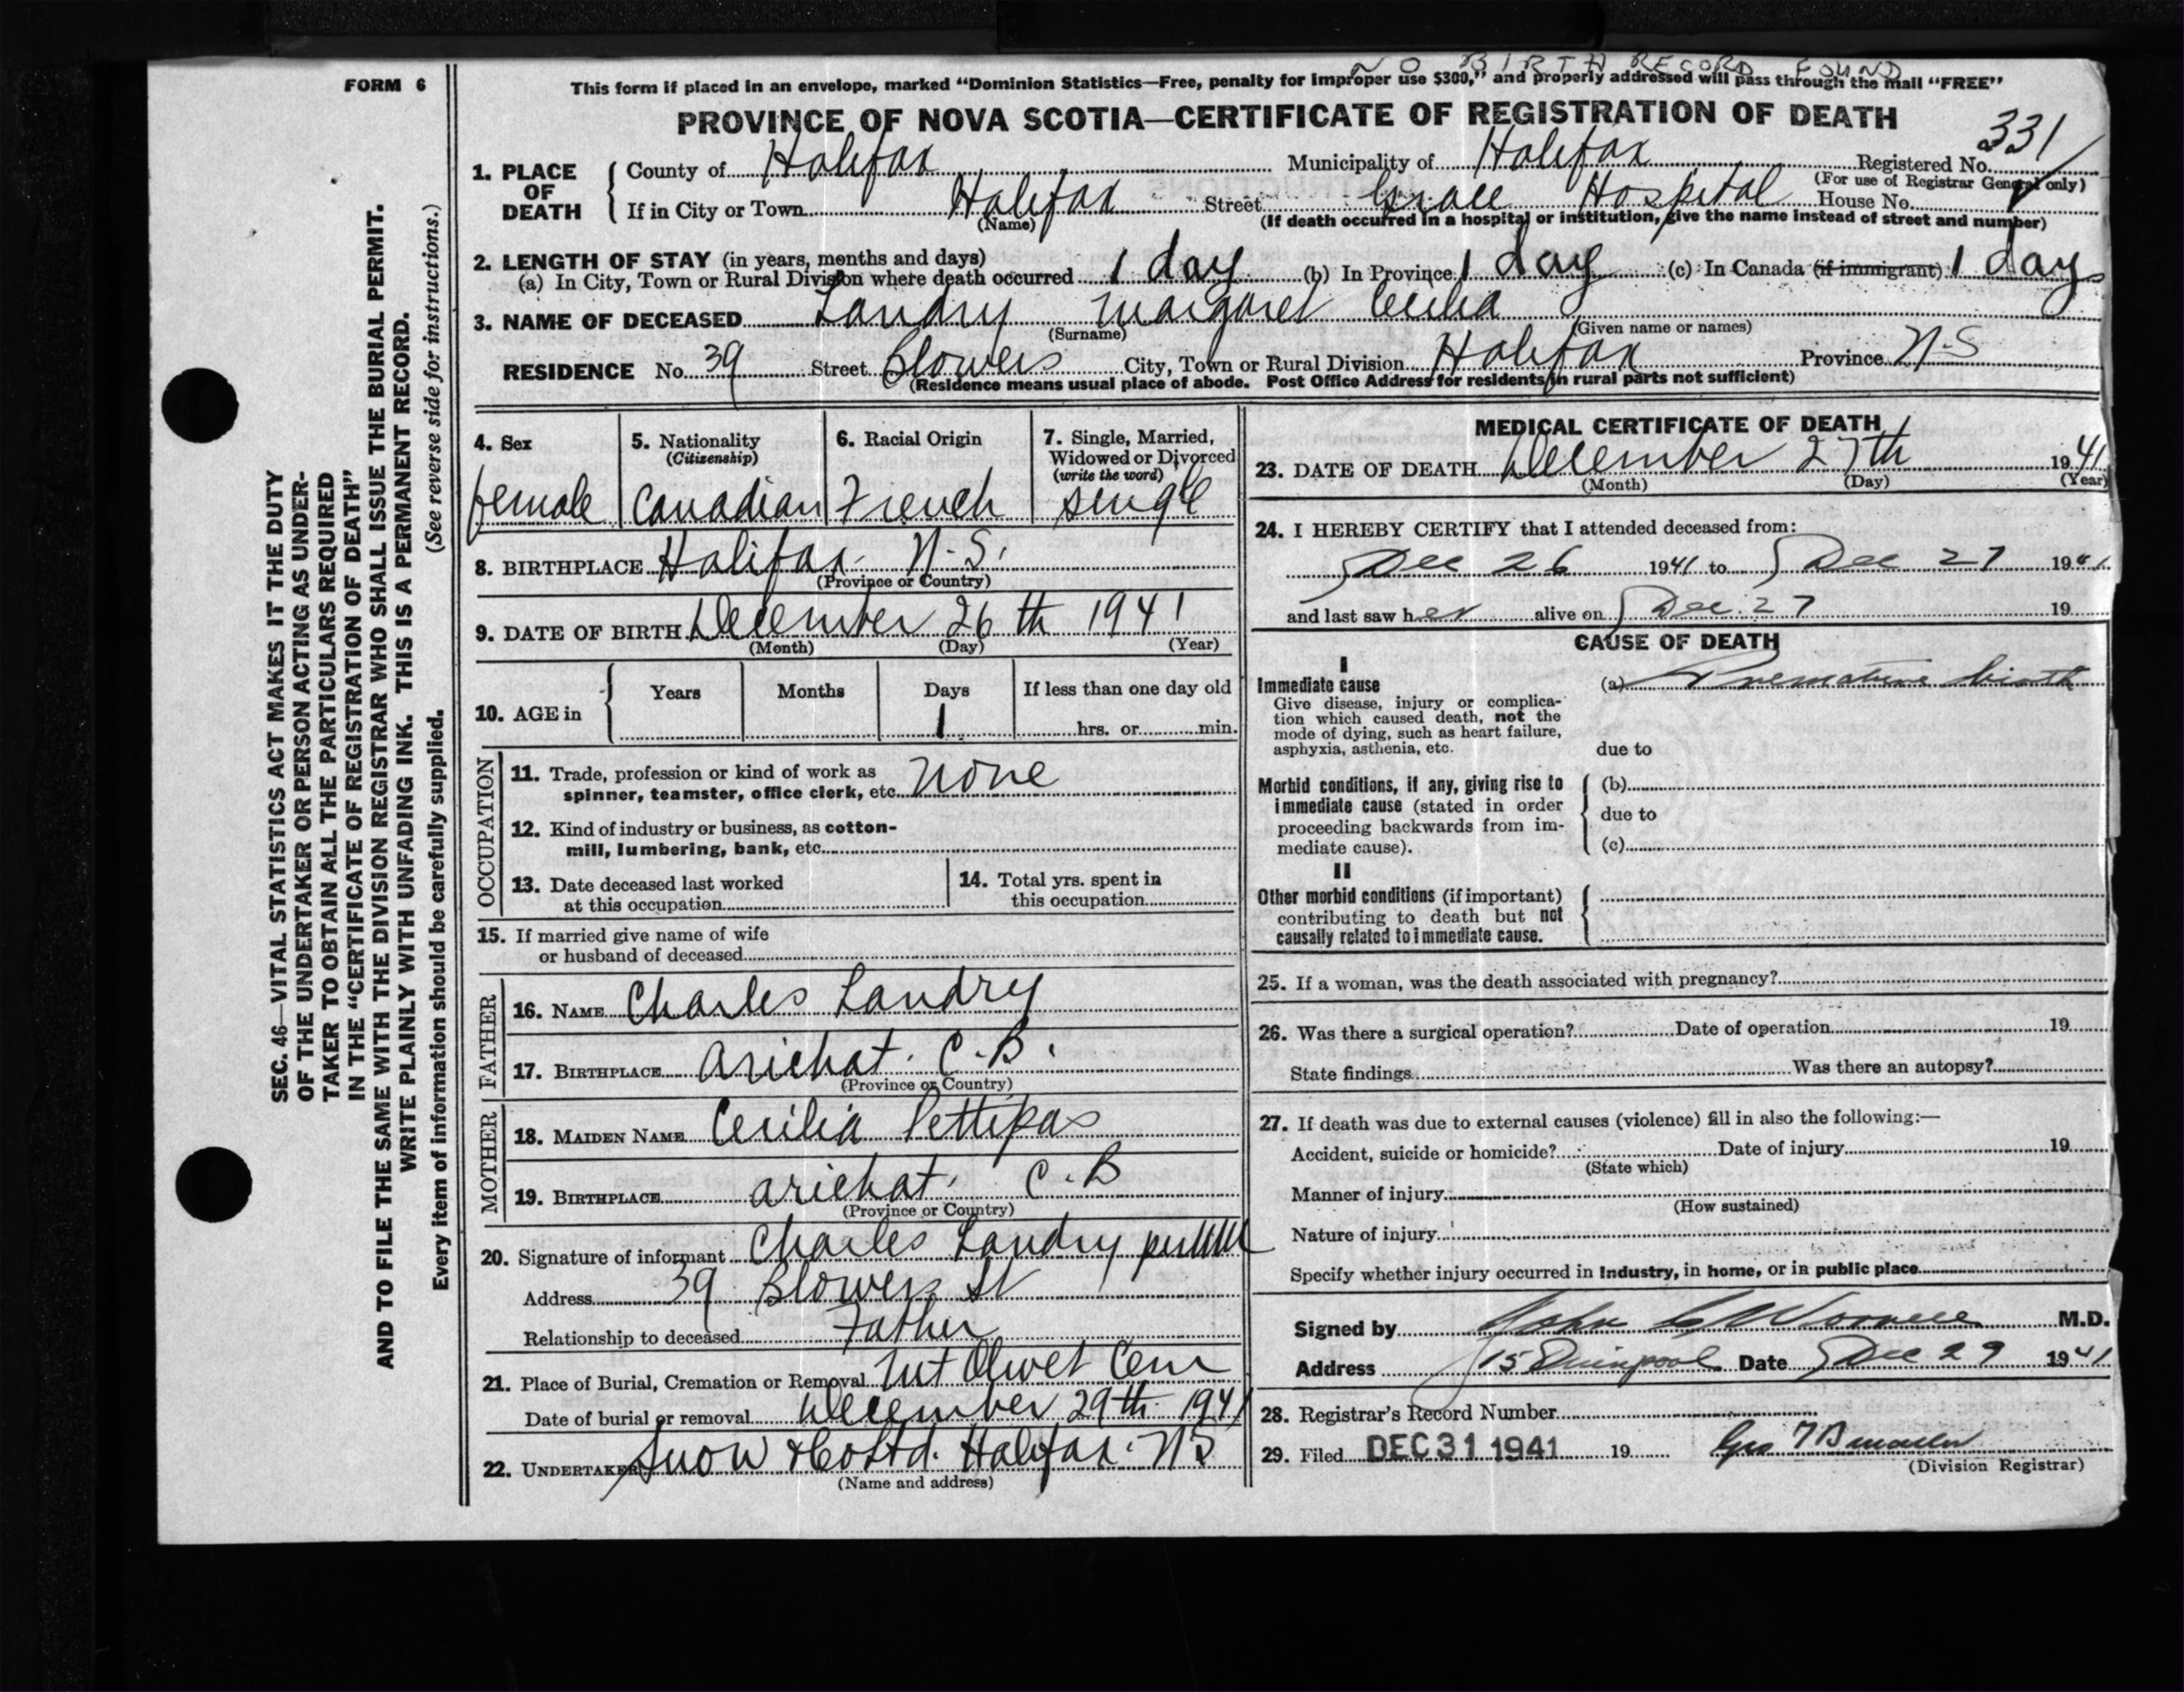 NO BIRTH RECORD FOUND
FORM 6
This form if placed in an envelope, marked "Dominion Statistics—Free, penalty for improper use $300," and properly addressed will pass through the mail "FREE"
PROVINCE OF NOVA SCOTIA—CERTIFICATE OF REGISTRATION OF DEATH
331
1. PLACE OF DEATH County of Halifax Municipality of Halifax Registered No.
(For use of Registrar General only)
If in City or Town Halifax Street Grace Hospital House No.
(Name) (If death occurred in a hospital or institution, give the name instead of street and number)
2. LENGTH OF STAY (in years, months and days)
(a) In City, Town or Rural Division where death occurred 1 day (b) In Province 1 day (c) In Canada (if immigrant) 1 day
3. NAME OF DECEASED Landry Margaret Cecilia
(Surname) (Given name or names)
RESIDENCE No. 39 Street Blowers City, Town or Rural Division Halifax Province N-S
(Residence means usual place of abode. Post Office Address for residents in rural parts not sufficient)
4. Sex
female
5. Nationality
(Citizenship)
Canadian
6. Racial Origin
French
7. Single, Married,
Widowed or Divorced
(write the word)
single
8. BIRTHPLACE Halifax N.S.
(Province or Country)
9. DATE OF BIRTH December 26th 1941
(Month) (Day) (Year)
10. AGE in Years Months Days If less than one day old
1 hrs. or min.
OCCUPATION
11. Trade, profession or kind of work as
spinner, teamster, office clerk, etc. None
12. Kind of industry or business, as cotton-
mill, lumbering, bank, etc.
13. Date deceased last worked
at this occupation
14. Total yrs. spent in
this occupation
15. If married give name of wife
or husband of deceased
FATHER
16. NAME Charles Landry
17. BIRTHPLACE Arichat. C.B.
(Province or Country)
MOTHER
18. MAIDEN NAME Cecilia Pettipas
19. BIRTHPLACE Arichat. C.B
(Province or Country)
20. Signature of informant Charles Landry
Address 39 Blowers St
Relationship to deceased Father
21. Place of Burial, Cremation or Removal Mt Olivet Cem
Date of burial or removal December 29th 1941
22. UNDERTAKER Snow & Co Ltd. Halifax. N S
(Name and address)
MEDICAL CERTIFICATE OF DEATH
23. DATE OF DEATH December 27th 1941
(Month) (Day) (Year)
24. I HEREBY CERTIFY that I attended deceased from:
Dec 26 1941 to Dec 27 1941
and last saw her alive on Dec. 27 19
CAUSE OF DEATH
I
Immediate cause
Give disease, injury or complica-
tion which caused death, not the
mode of dying, such as heart failure,
asphyxia, asthenia, etc.
(a) Premature birth
due to
Morbid conditions, if any, giving rise to
immediate cause (stated in order
proceeding backwards from im-
mediate cause).
(b)
due to
(c)
II
Other morbid conditions (if important)
contributing to death but not
causally related to immediate cause.
25. If a woman, was the death associated with pregnancy?
26. Was there a surgical operation? Date of operation 19
State findings Was there an autopsy?
27. If death was due to external causes (violence) fill in also the following:—
Accident, suicide or homicide? Date of injury 19
(State which)
Manner of injury
(How sustained)
Nature of injury
Specify whether injury occurred in Industry, in home, or in public place
Signed by John M.D.
Address 15 Quinpool Date Dec 29 1941
28. Registrar's Record Number
29. Filed DEC 31 1941 19
(Division Registrar)
SEC. 46—VITAL STATISTICS ACT MAKES IT THE DUTY
OF THE UNDERTAKER OR PERSON ACTING AS UNDER-
TAKER TO OBTAIN ALL THE PARTICULARS REQUIRED
IN THE "CERTIFICATE OF REGISTRATION OF DEATH"
AND TO FILE THE SAME WITH THE DIVISION REGISTRAR WHO SHALL ISSUE THE BURIAL PERMIT.
WRITE PLAINLY WITH UNFADING INK. THIS IS A PERMANENT RECORD.
Every item of information should be carefully supplied. (See reverse side for instructions.)